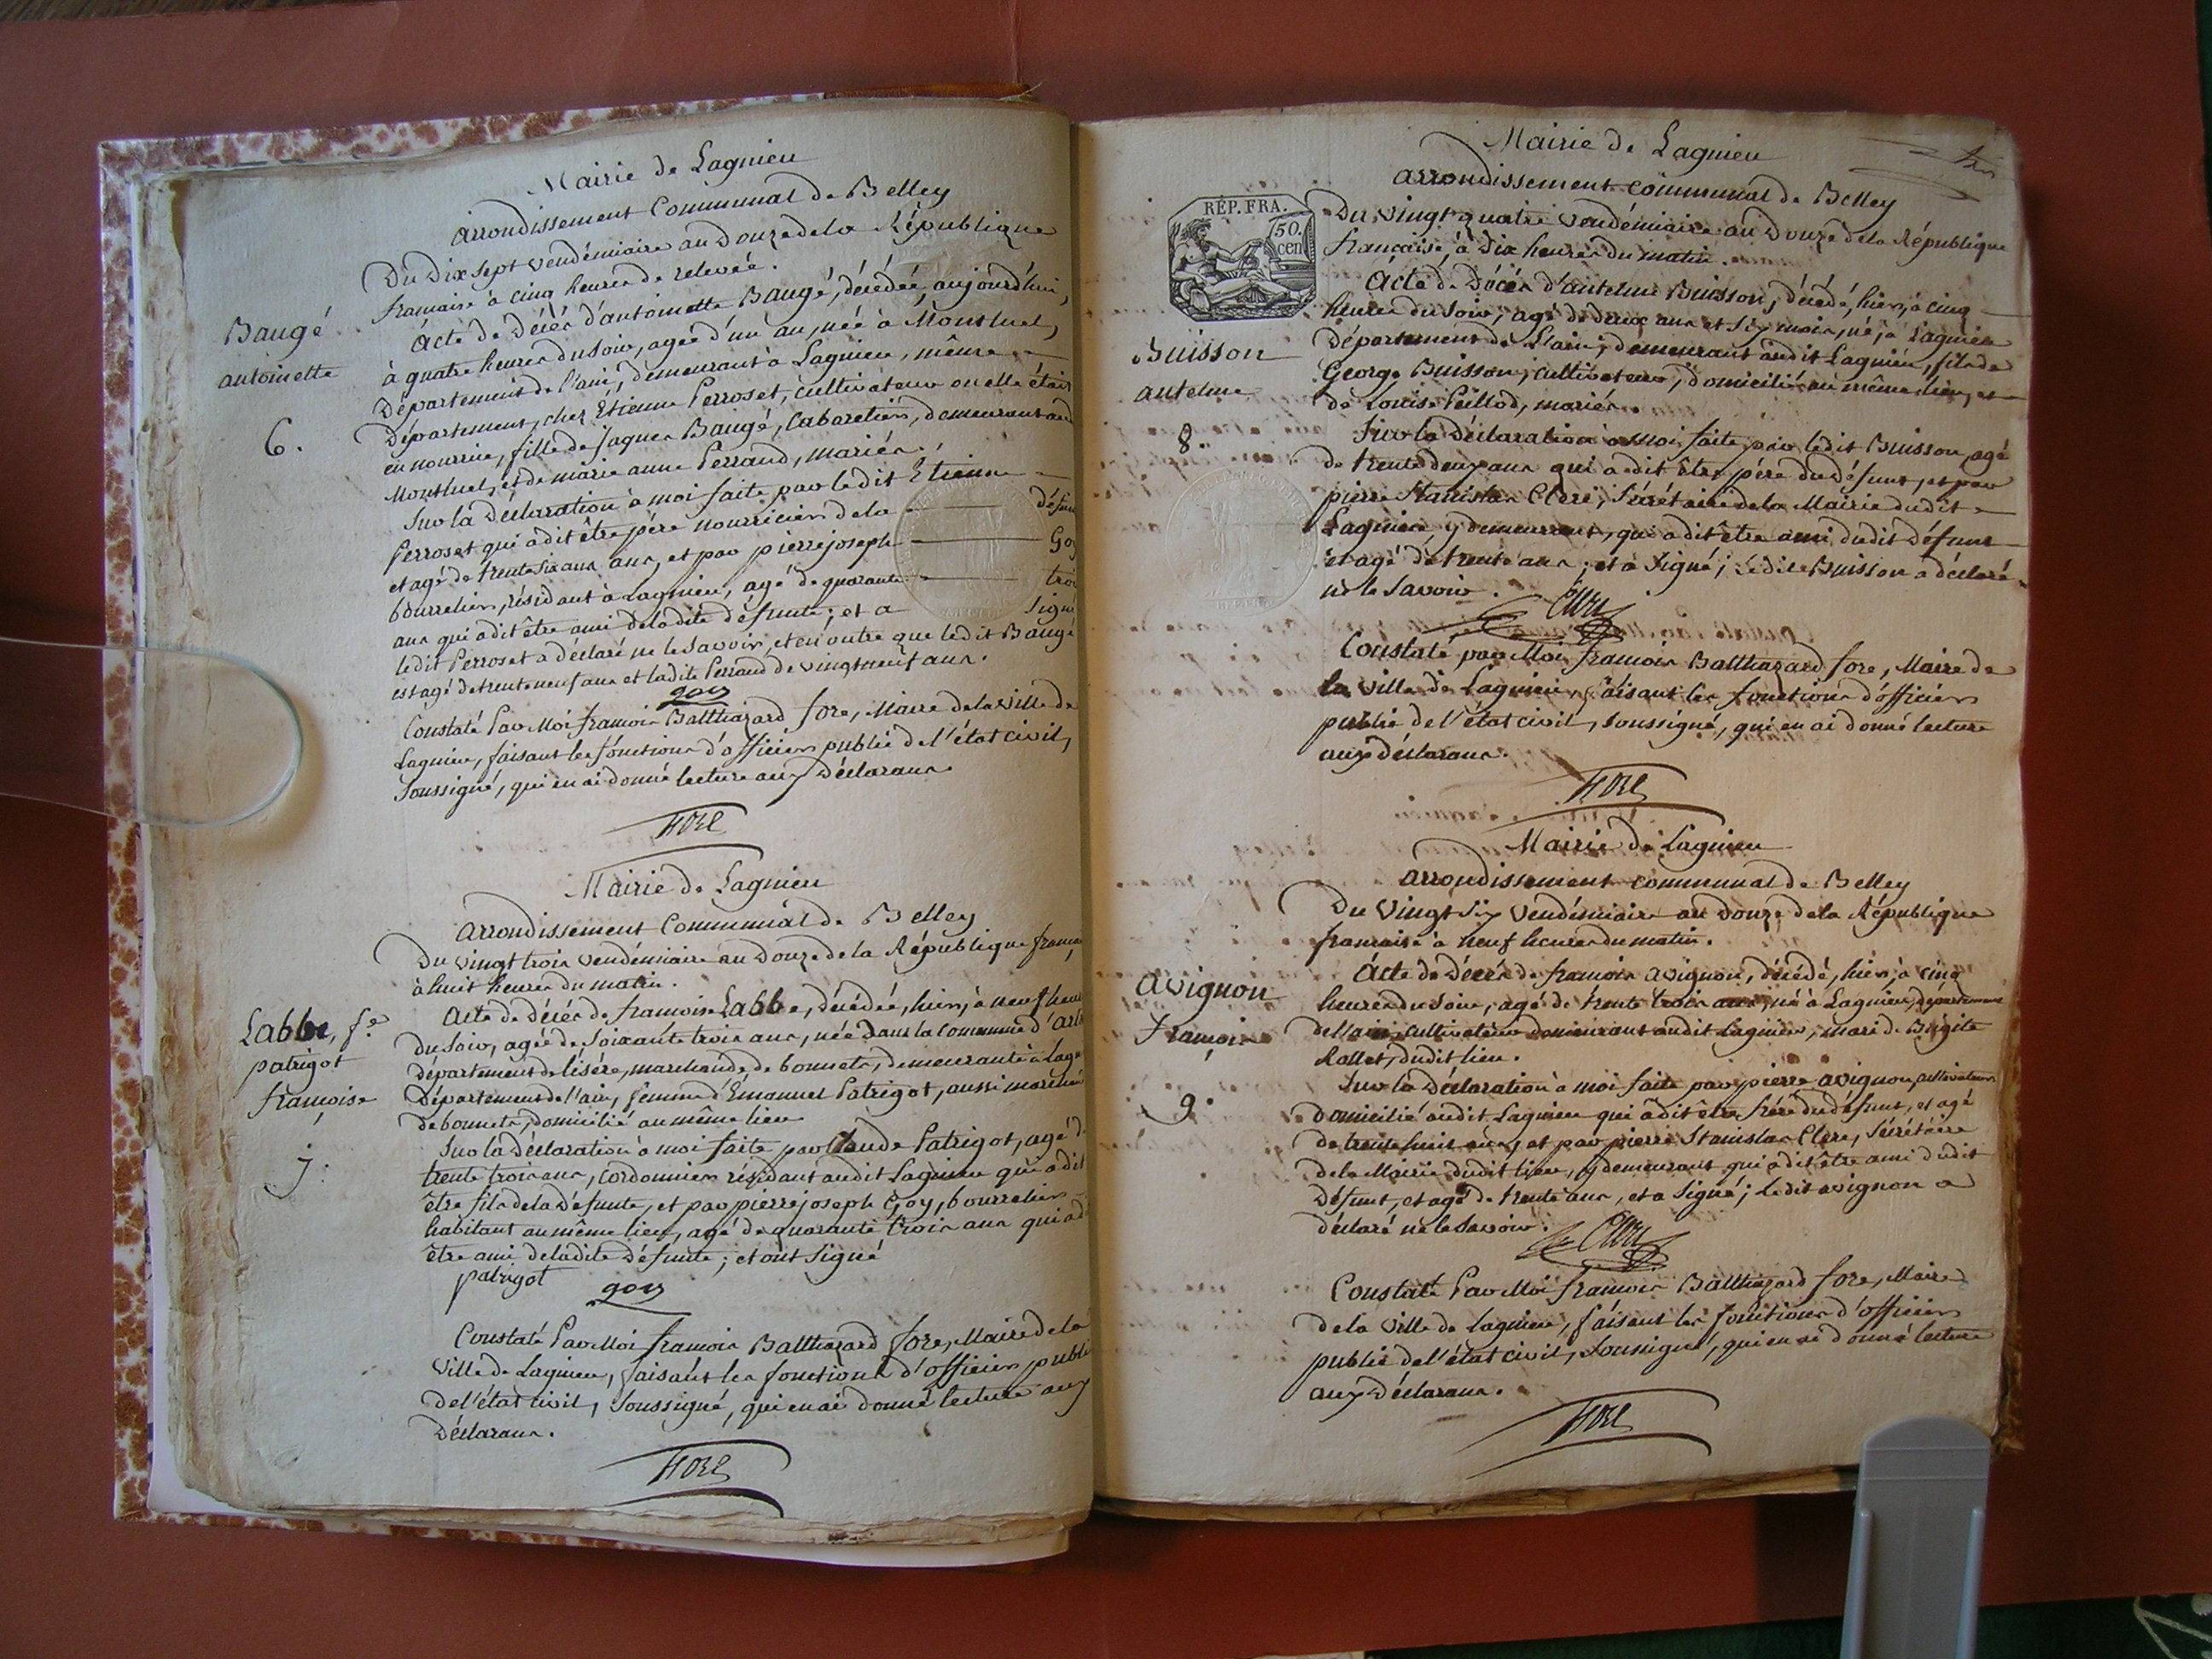 Mairie de Lagnieu
arrondissement Communal de Belley
Du Dix sept vendémiaire an Douze de la République
francaise à cinq heures de relevée.
Baugé
antoinette
6.
Acte de Décès d'antoinette Baugé, décédée, aujourd'hui,
à quatre heures du soir, agée d'un an, née à Montluel,
Département de l'ain, demeurant à Lagnieu, même
Département, chez Étienne Perroset, cultivateur ou elle était
en nourrice, fille de Jaques Baugé, Cabaretier, demeurant aud
Montluel, et de marie anne Perraud, mariés.
Sur la Déclaration à moi faite par ledit Etienne
Perroset qui a dit être père nourricier de la défun
et agé de trente six ans ans, et par pierre joseph Goy
bourrelier, résidant à Lagnieu, agé de quarante trois
ans qui a dit être ami de ladite défunte; et a signé
ledit Perroset a déclaré ne le savoir, et en outre que ledit Baugé
est agé de trente neuf ans et ladite Perraud de vingt neuf ans.
goy
Constaté Par Moi francois Balthazard fore, Maire de la ville de
Lagnieu, faisant les fonctions d'officier public de l'état civil,
Soussigné, qui en ai donné lecture aux Déclarans.
FORE
Mairie de Lagnieu
arrondissement Communal de Belley
Du vingt trois vendémiaire an Douze de la République franç
à huit heures du matin.
Labbe, fe.
patrigot
françoise
7.
Acte de décès de francoise Labbe, décédée, hier, à neuf heur
du soir, agée de soixante trois ans, née dans la commune d'
département de l'isère, marchande de bonnets, demeurante à Lagn
Département de l'ain, femme d'Émanuel Patrigot, aussi march
de bonnets, domicilié au même lieu
Sur la déclaration à moi faite par Claude Patrigot, agé d
trente trois ans, cordonnier résidant audit Lagnieu qui a dit
être fils de la défunte, et par pierre joseph Goy, bourrelier
habitant au même lieu, agé de quarante trois ans qui a d
être ami de ladite défunte; et ont signé
patrigot goy
Constaté Par Moi francois Balthazard fore, Maire de la
ville de Lagnieu, faisant les fonctions d'officier publi
de l'état civil, Soussigné, qui en ai donné lecture aux
Déclarans.
FORE
Mairie de Lagnieu
arrondissement communal de Belley
RÉP. FRA.
50.
cen
Du vingt quatre vendémiaire an Douze de la République
francaise, à dix heures du matin.
Buisson
antelme
8.
Acte de Décès d'antelme Buisson, décédé, hier, à cinq
heures du soir, agé de deux ans et six mois, né, à Lagnieu
Département de L'ain, demeurant audit Lagnieu, fils de
George Buisson, cultivateur, domicilié au même lieu, et
de Louise Peillod, mariés.
Sur la déclaration à moi faite par ledit Buisson, agé
de trente deux ans qui a dit être père du défunt, et par
pierre Stanislas Clerc, Sécrétaire de la Mairie dudit
Lagnieu, y demeurant, qui a dit être ami dudit défunt
et agé de trente ans; et a signé; Ledit Buisson a déclaré
ne le savoir.
Clerc
Constaté par Moi francois Balthazard fore, Maire de
la ville de Lagnieu, faisant les fonctions d'officier
public de l'état civil, soussigné, qui en ai donné lecture
aux déclarans.
FORE
Mairie de Lagnieu
arrondissement communal de Belley
Du Vingt Six Vendémiaire an Douze de la République
francaise à neuf heures du matin.
avignon
François
9.
Acte de Décès de francois avignon, décédé, hier, à cinq
heures du soir, agé de trente trois ans, né à Lagnieu, département
de l'ain, cultivateur demeurant audit Lagnieu, mari de Brigite
Rollet, dudit lieu.
Sur la Déclaration à moi faite par pierre avignon, cultivateur
domicilié audit Lagnieu qui a dit être frère du défunt, et agé
de trente huit ans, et par pierre Stanislas Clerc, Sécrétaire
de la Mairie dudit lieu, y demeurant qui a dit être ami dudit
Défunt, et agé de trente ans, et a Signé; Ledit avignon a
déclaré ne le savoir.
Clerc
Constaté Par Moi francois Balthazard fore, Maire
de la ville de Lagnieu, faisant les fonctions d'officier
public de l'état civil, Soussigné, qui en ai donné lecture
aux Déclarans.
FORE